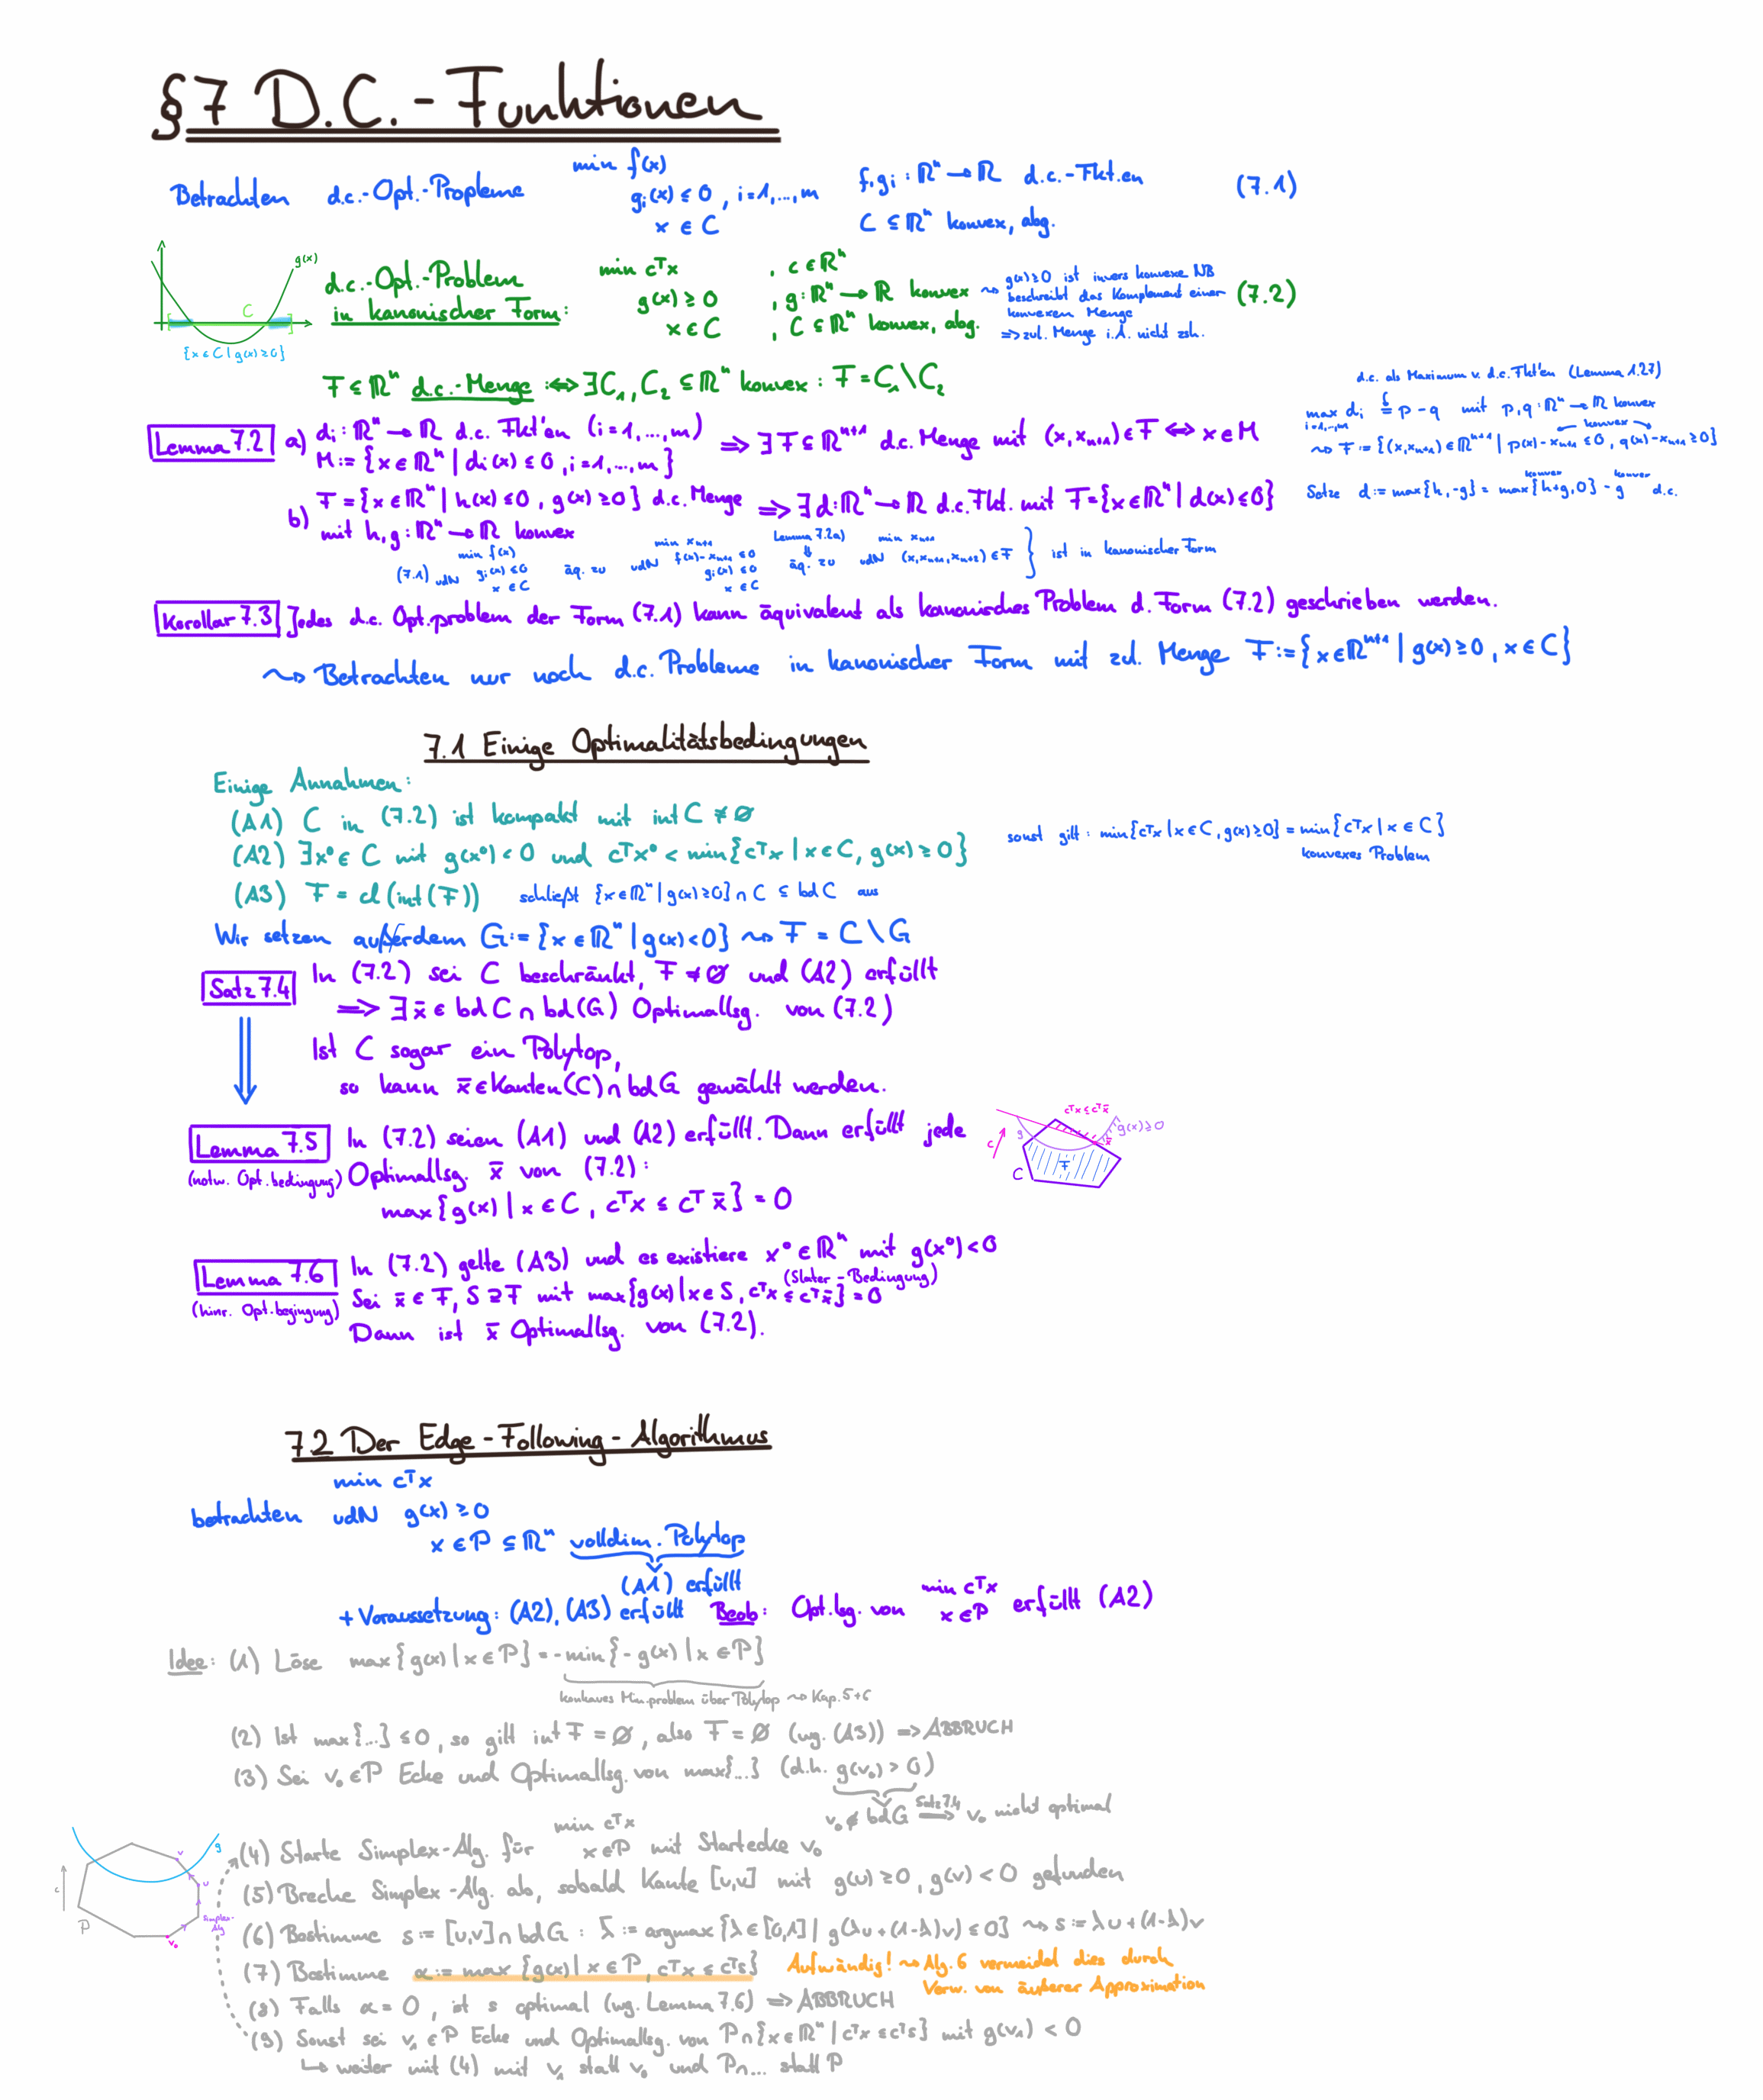 §7 D.C.-Funktionen
Betrachten d.c.-Opt.-Propleme
min f(x)
gᵢ(x) ≤ 0 , i=1,...,m
x ∈ C
f,gᵢ : ℝⁿ → ℝ d.c.-Fkt.en
C ⊆ ℝⁿ konvex, abg.
(7.1)
g(x)
C
{x ∈ C | g(x) ≥ 0}
d.c.-Opt.-Problem
in kanonischer Form:
min cᵀx , c ∈ ℝⁿ
g(x) ≥ 0 , g: ℝⁿ → ℝ konvex
x ∈ C , C ⊆ ℝⁿ konvex, abg.
⇝ g(x) ≥ 0 ist invers konvexe NB
beschreibt das Komplement einer
konvexen Menge
=> zul. Menge i.A. nicht zsh.
(7.2)
F ⊆ ℝⁿ d.c.-Menge :⇔ ∃C₁, C₂ ⊆ ℝⁿ konvex : F = C₁\C₂
Lemma 7.2
a) dᵢ: ℝⁿ → ℝ d.c. Fkt'en (i=1,...,m)
M := {x ∈ ℝⁿ | dᵢ(x) ≤ 0, i=1,...,m}
=> ∃ F ⊆ ℝⁿ⁺¹ d.c. Menge mit (x, xₙ₊₁) ∈ F ⇔ x ∈ M
d.c. als Maximum v. d.c. Fkt'en (Lemma 1.27)
max dᵢ = p - q mit p,q: ℝⁿ → ℝ konvex
i=1,..,m
konvex
⇝ F := {(x,xₙ₊₁) ∈ ℝⁿ⁺¹ | p(x) - xₙ₊₁ ≤ 0, q(x) - xₙ₊₁ ≥ 0}
b) F = {x ∈ ℝⁿ | h(x) ≤ 0, g(x) ≥ 0} d.c. Menge
mit h,g: ℝⁿ → ℝ konvex
=> ∃ d: ℝⁿ → ℝ d.c. Fkt. mit F = {x ∈ ℝⁿ | d(x) ≤ 0}
konvex konvex
Setze d := max{h,-g} = max{h+g,0} - g d.c.
min f(x) min xₙ₊₁ Lemma 7.2a) min xₙ₊₁
(7.1) udN gᵢ(x) ≤ 0 äq. zu udN f(x) - xₙ₊₁ ≤ 0 ⇓ äq. zu udN (x,xₙ₊₁,xₙ₊₂) ∈ F } ist in kanonischer Form
x ∈ C gᵢ(x) ≤ 0
x ∈ C
Korollar 7.3 Jedes d.c. Opt.problem der Form (7.1) kann äquivalent als kanonisches Problem d. Form (7.2) geschrieben werden.
⇝ Betrachten nur noch d.c. Probleme in kanonischer Form mit zul. Menge F := {x ∈ ℝⁿ⁺¹ | g(x) ≥ 0, x ∈ C}
7.1 Einige Optimalitätsbedingungen
Einige Annahmen:
(A1) C in (7.2) ist kompakt mit int C ≠ ∅
(A2) ∃x⁰ ∈ C mit g(x⁰) < 0 und cᵀx⁰ < min{cᵀx | x ∈ C, g(x) ≥ 0}
sonst gilt: min{cᵀx | x ∈ C, g(x) ≥ 0} = min{cᵀx | x ∈ C}
konvexes Problem
(A3) F = cl(int(F)) schließt {x ∈ ℝⁿ | g(x) ≥ 0} ∩ C ⊆ bd C aus
Wir setzen außerdem G := {x ∈ ℝⁿ | g(x) < 0} ⇝ F = C\G
Satz 7.4
In (7.2) sei C beschränkt, F ≠ ∅ und (A2) erfüllt
=> ∃ x̄ ∈ bd C ∩ bd(G) Optimallsg. von (7.2)
Ist C sogar ein Polytop,
so kann x̄ ∈ Kanten(C) ∩ bd G gewählt werden.
Lemma 7.5
(notw. Opt.bedingung)
In (7.2) seien (A1) und (A2) erfüllt. Dann erfüllt jede
Optimallsg. x̄ von (7.2):
max{g(x) | x ∈ C, cᵀx ≤ cᵀx̄} = 0
cᵀx ≤ cᵀx̄
g
g(x) ≥ 0
c
x̄
F
C
Lemma 7.6
(hinr. Opt.begingung)
In (7.2) gelte (A3) und es existiere x⁰ ∈ ℝⁿ mit g(x⁰) < 0
(Slater-Bedingung)
Sei x̄ ∈ F, S ⊇ F mit max{g(x) | x ∈ S, cᵀx ≤ cᵀx̄} = 0
Dann ist x̄ Optimallsg. von (7.2).
7.2 Der Edge-Following-Algorithmus
min cᵀx
betrachten udN g(x) ≥ 0
x ∈ P ⊆ ℝⁿ volldim. Polytop
(A1) erfüllt
+ Voraussetzung: (A2), (A3) erfüllt
Beob: Opt.lsg. von min cᵀx
x ∈ P
erfüllt (A2)
Idee: (1) Löse max{g(x) | x ∈ P} = -min{-g(x) | x ∈ P}
konkaves Min.problem über Polytop ⇝ Kap. 5+6
(2) Ist max{...} ≤ 0, so gilt int F = ∅, also F = ∅ (wg. (A3)) => ABBRUCH
(3) Sei v₀ ∈ P Ecke und Optimallsg. von max{...} (d.h. g(v₀) > 0)
v₀ ∉ bd G Satz 7.4 => v₀ nicht optimal
(4) Starte Simplex-Alg. für min cᵀx
x ∈ P
mit Startecke v₀
(5) Breche Simplex-Alg. ab, sobald Kante [u,v] mit g(u) ≥ 0, g(v) < 0 gefunden
(6) Bestimme s := [u,v] ∩ bd G : λ̄ := argmax{λ ∈ [0,1] | g(λu + (1-λ)v) ≤ 0} ⇝ s := λ̄u + (1-λ̄)v
(7) Bestimme α := max{g(x) | x ∈ P, cᵀx ≤ cᵀs}
Aufwändig! ⇝ Alg. 6 vermeidet dies durch
Verw. von äußerer Approximation
(8) Falls α = 0, ist s optimal (wg. Lemma 7.6) => ABBRUCH
(9) Sonst sei v₁ ∈ P Ecke und Optimallsg. von P ∩ {x ∈ ℝⁿ | cᵀx ≤ cᵀs} mit g(v₁) < 0
↳ weiter mit (4) mit v₁ statt v₀ und P∩... statt P
g
v
u
c
P
Simplex-
Alg
v₀